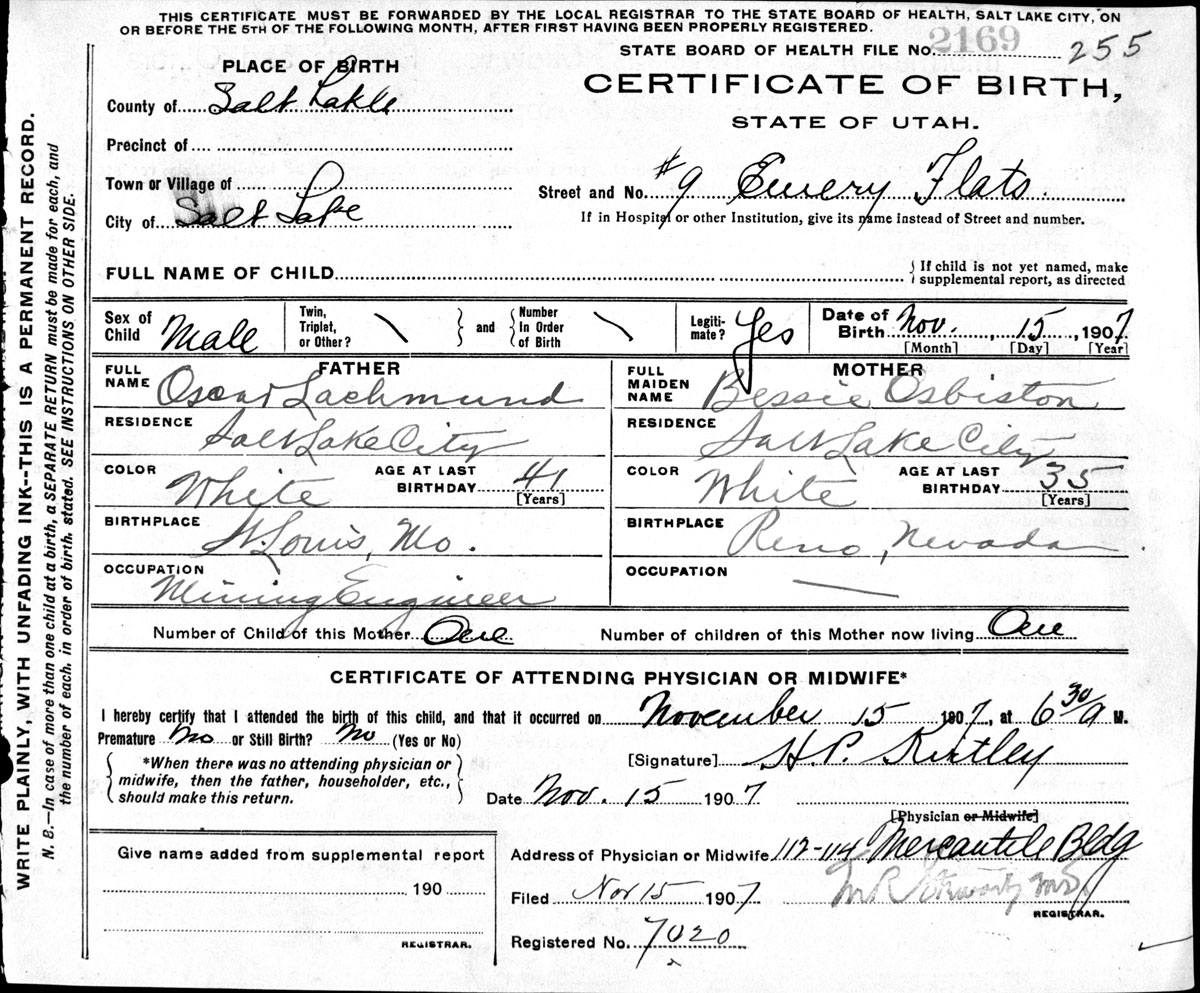 THIS CERTIFICATE MUST BE FORWARDED BY THE LOCAL REGISTRAR TO THE STATE BOARD OF HEALTH, SALT LAKE CITY, ON
OR BEFORE THE 5TH OF THE FOLLOWING MONTH, AFTER FIRST HAVING BEEN PROPERLY REGISTERED.
STATE BOARD OF HEALTH FILE No. 2169 255
PLACE OF BIRTH
CERTIFICATE OF BIRTH,
STATE OF UTAH.
County of Salt Lakle
Precinct of
Town or Village of
City of Salt Lake
Street and No. #9 Emery Flats.
If in Hospital or other Institution, give its name instead of Street and number.
FULL NAME OF CHILD
{ If child is not yet named, make
supplemental report, as directed
Sex of Child Male
Twin, Triplet, or Other? \ } and { Number In Order of Birth \
Legiti-mate? Yes
Date of Birth Nov. 15, 1907
[Month] [Day] [Year]
FATHER
FULL NAME Oscar Lachmund
RESIDENCE Salt Lake City
COLOR White AGE AT LAST BIRTHDAY 41
[Years]
BIRTHPLACE St. Louis, Mo.
OCCUPATION Mining Engineer
MOTHER
FULL MAIDEN NAME Bessie Osbiston
RESIDENCE Salt Lake City
COLOR White AGE AT LAST BIRTHDAY 35
[Years]
BIRTHPLACE Reno, Nevada
OCCUPATION —
Number of Child of this Mother One Number of children of this Mother now living One
CERTIFICATE OF ATTENDING PHYSICIAN OR MIDWIFE*
I hereby certify that I attended the birth of this child, and that it occurred on November 15 1907, at 6 30/a M.
Premature No or Still Birth? No (Yes or No)
[Signature] H. P. Kirtley
{ *When there was no attending physician or
midwife, then the father, householder, etc.,
should make this return. }
Date Nov. 15 1907
[Physician or Midwife]
Address of Physician or Midwife 112-114 Mercantile Bldg
Filed Nov 15 1907
REGISTRAR.
Registered No. 7020
Give name added from supplemental report
190
REGISTRAR.
WRITE PLAINLY, WITH UNFADING INK--THIS IS A PERMANENT RECORD.
N. B.—In case of more than one child at a birth, a SEPARATE RETURN must be made for each, and
the number of each, in order of birth, stated. SEE INSTRUCTIONS ON OTHER SIDE.